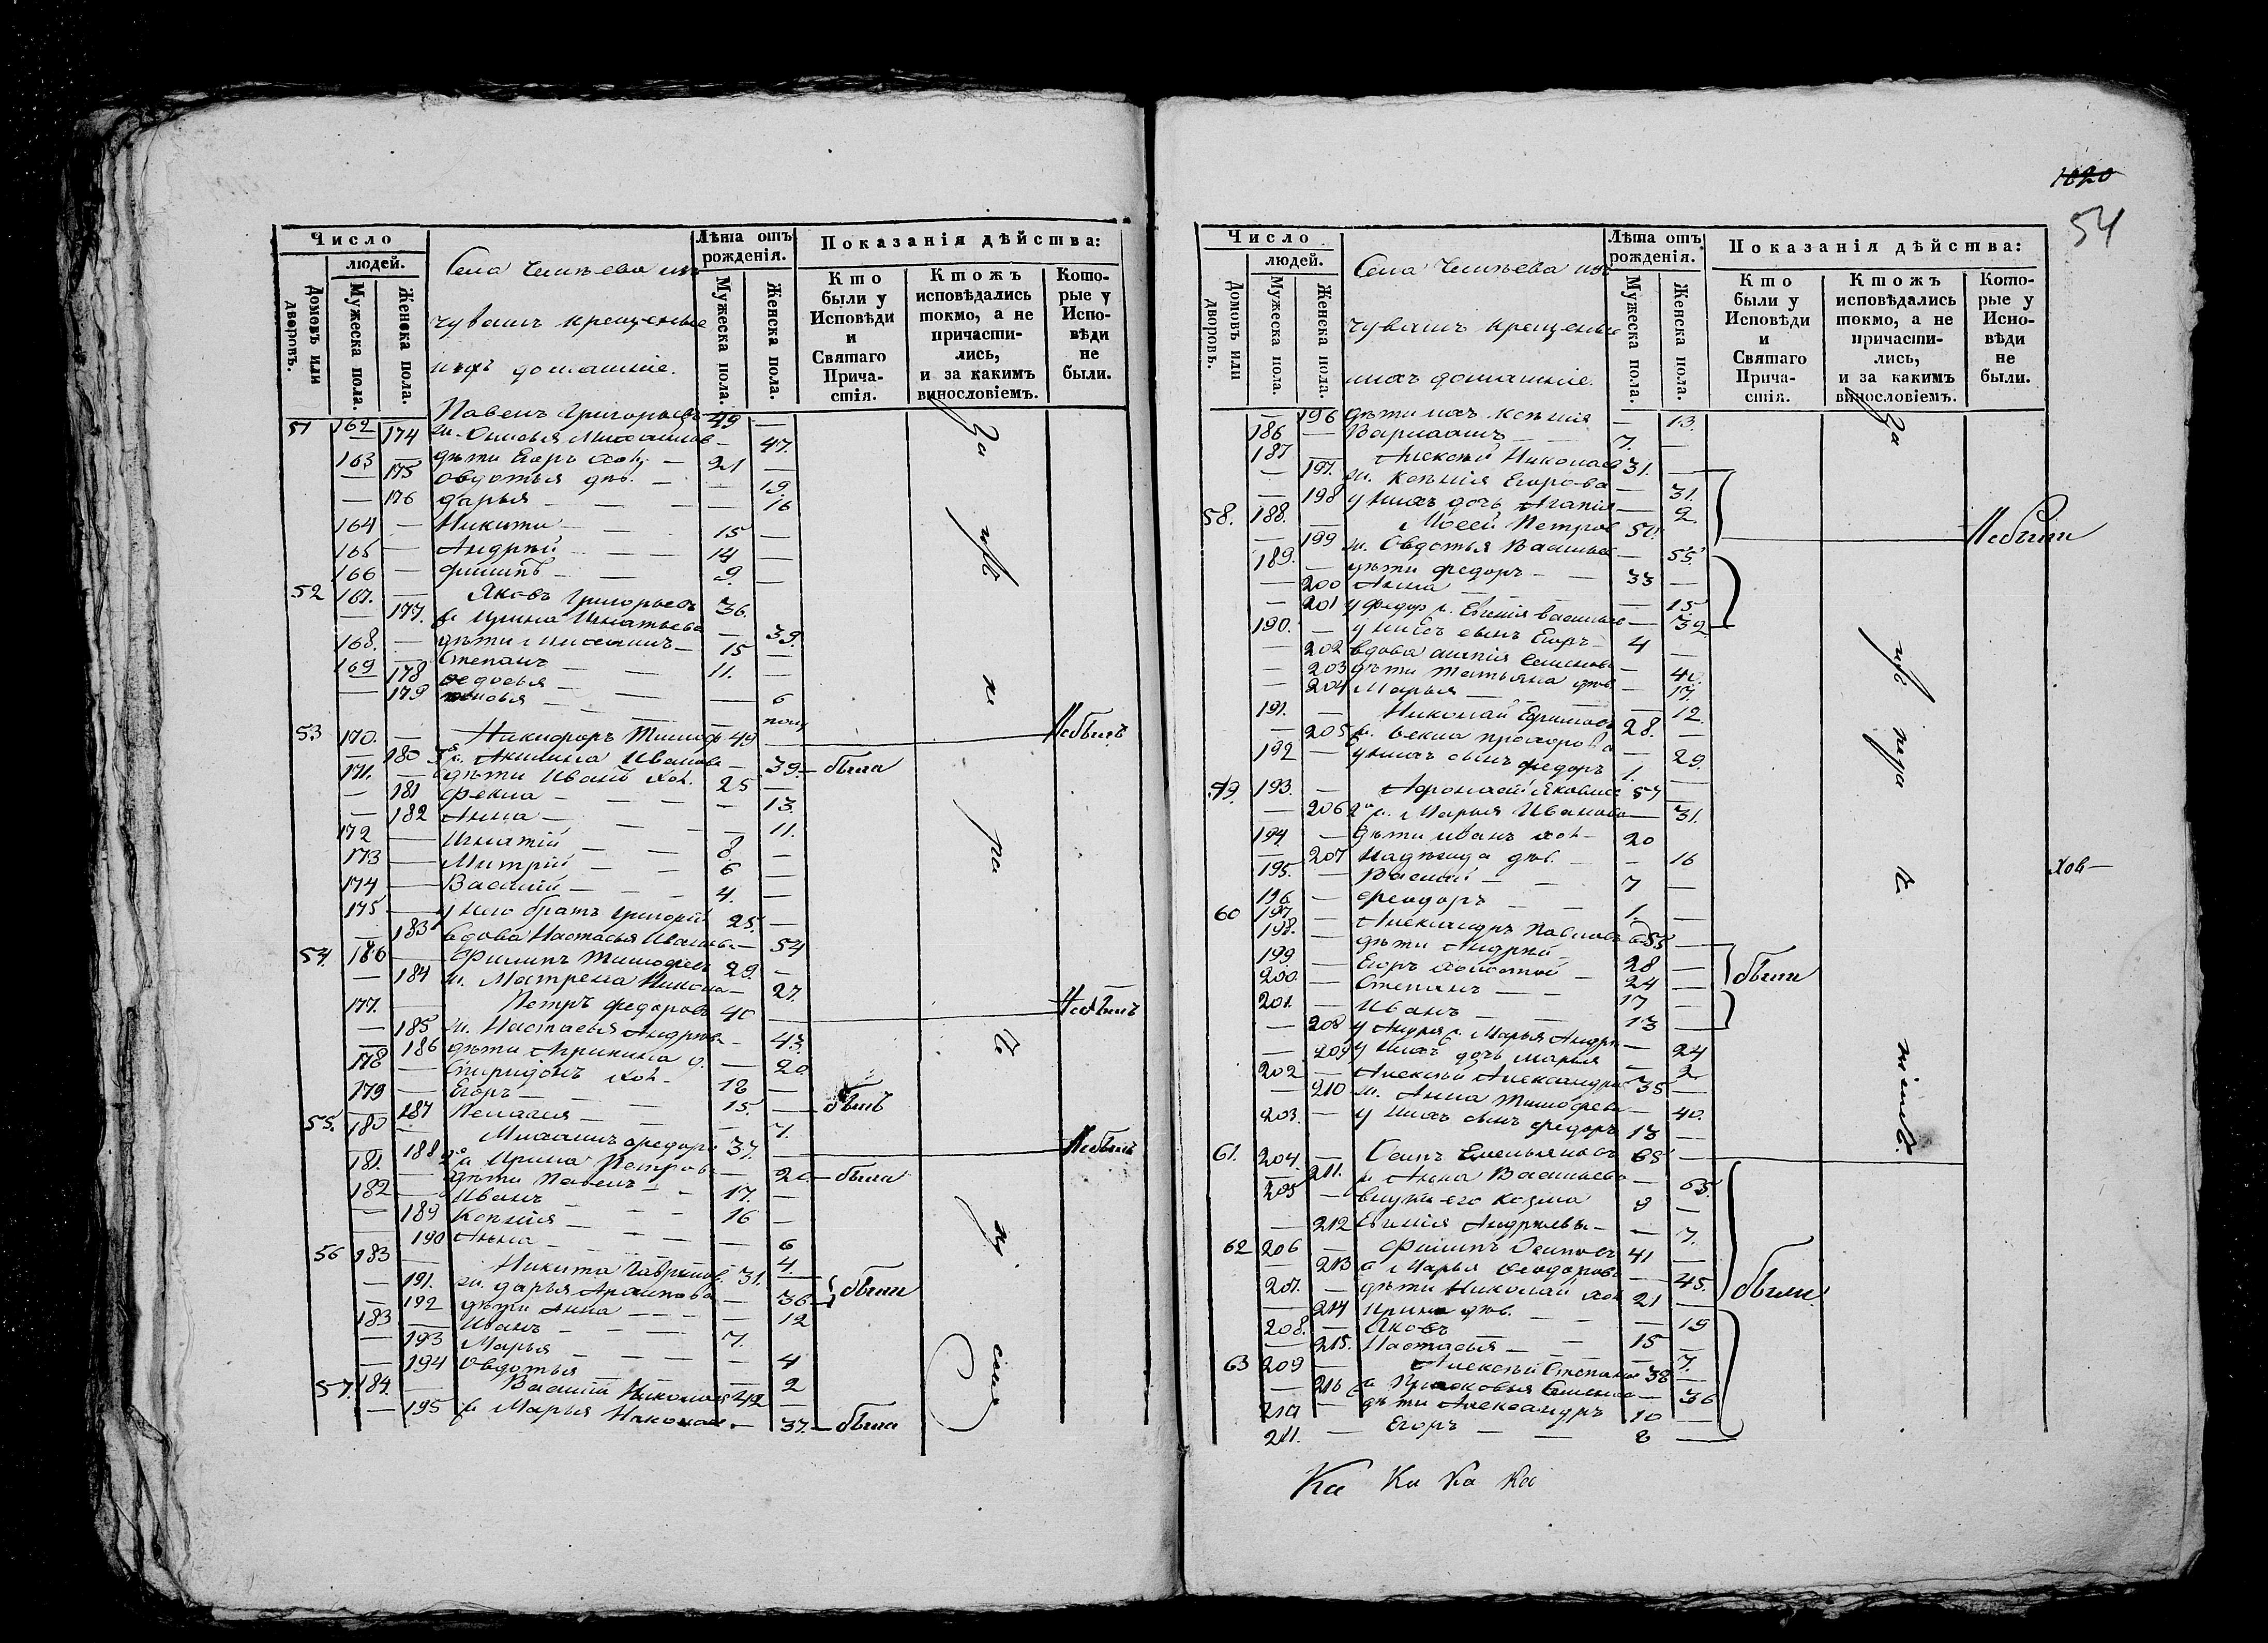 Число
людей.
Домовъ или дворовъ.
Мужеска пола.
Женска пола.
Села
чувашъ крещеные
ихъ домашніе.
Лѣта отъ рожденія.
Мужеска пола.
Женска пола.
Показанія дѣйства:
Кто были у Исповѣди и Святаго Причастія.
Ктожъ исповѣдались токмо, а не причастились, и за какимъ винословіемъ.
Которые у Исповѣди не были.
51 162 — Павелъ Григорьевъ 49 —
— 174 ж. — 47.
163 — дѣти Егоръ хол. — 21 —
— 175 Овдотья дѣв. — — 19
— 176 Дарья — — 16
164 — Никита — 15 —
165 — Андрей — 14 —
166 — Филипъ — 9. —
52 167. — Яковъ Григорьевъ 36.
— 177. Ирина Игнатьева — 39.
168. — дѣти 15 —
169 — Степанъ 11. —
— 178 Федосья — 6
— 179
53 170. — Никифоръ Тимоф 49 — Небылъ
— 180 Акилина Иванова — 39. — была
171. — дѣти Иванъ хол. 25 —
— 181 Фекла — — 13.
— 182 Анна — — 11.
172 — Игнатій — 8 —
173 — Митрій — 6 —
174 — Василій — 4. —
175 — у него братъ Григорій 25. —
— 183 вдова Настасья Иванова — 54
54. 186 — Филипъ Тимофеевъ 29. —
— 184 ж. Матрена — 27.
177. — Петръ Федоровъ 40 — Небылъ
— 185 ж. Настасья Андреева — 43.
— 186 дѣти — 20
178 — Спиридонъ хол. 18 —
179 — Егоръ — 15. — былъ
— 187 Пелагея — — 7.
55. 180 — Михаилъ Федоро 37. — Небылъ
— 188 Ирина Петрова — 20. — была
181. — дѣти Павелъ — 17. —
182 — Иванъ — 16 —
— 189 Ксенія — — 6
— 190 Анна — — 4.
56 183 — Никита Гавриловъ 31. —
— 191. ж. Дарья — 36. были
— 192 дѣти Анна — — 12
183 — Иванъ — 7. —
— 193 Марья — — 4
— 194 Овдотья — — 2
57. 184. — Василій Николаевъ 42 —
— 195 Марья — 37. — была
1020
54
Число
людей.
Домовъ или дворовъ.
Мужеска пола.
Женска пола.
Села
чувашъ крещеные
ихъ домашніе.
Лѣта отъ рожденія.
Мужеска пола.
Женска пола.
Показанія дѣйства:
Кто были у Исповѣди и Святаго Причастія.
Ктожъ исповѣдались токмо, а не причастились, и за какимъ винословіемъ.
Которые у Исповѣди не были.
— 196 дѣти ихъ Ксенія — 13.
186 — Варлаамъ 7. —
187 — Алексей Николаев 31. —
— 197. ж. Ксенія Егорова — 31.
— 198 у нихъ дочь Агапія — 2.
58. 188. — Моесй Петров 50. — Небыли
— 199 ж. Овдотья Василье — 55.
189. — дѣти Федоръ — 33 —
— 200 Анна — 15
— 201 у Федор ж. Евгенія Василье — 32
190. — у нихъ сынъ Егоръ 4 —
— 202 вдова — 40.
— 203 дѣти Татьяна дѣв. — 17.
— 204 Марья — 12.
191. — Николай Ефимовъ 28. —
— 205 ж. Фекла Прохорова — 29.
192 — у нихъ сынъ Федоръ 1. —
59. 193. — 57 —
— 206 2 ж. Марья Иванова — 31.
194 — дѣти Иванъ хол. 20
— 207 Надежда дѣв. — 16
195. — Василій — 7 —
196 — Феодоръ — 1. —
60 197. — Александръ Павловъ 55 —
198. — дѣти Андрей — 28 —
199 — Егоръ холостой — 24 — были
200. — Степанъ — 17 —
201. — Иванъ — 13 —
— 208 у Андрея ж. Марья Андре — 24
— 209 у нихъ дочь Марья — 2
202 — Алексей Александро 35 —
— 210 ж. Анна Тимофеева — 40.
203. — у нихъ сынъ Федоръ 13 —
61. 204. — Осипъ Емельяновъ 65 —
— 211. ж. Анна Васильева — 65.
205 — внуки его Козма 9 —
— 212 Евгенія Андреева — 7.
62 206 — Филипъ Осиповъ 41 —
— 213 ж. Марья Феодорова — 45. были.
207. — дѣти Николай хол 21 —
— 214 Ирина дѣв. — 19
208. — Яковъ — 15 —
— 215. Настасья — — 7.
63 209 — Алексей Степановъ 38 —
— 216 ж. Прасковья — 36
210 — дѣти Александръ 10 —
211. — Егоръ — 8 —
Ка Ка Ка Ка